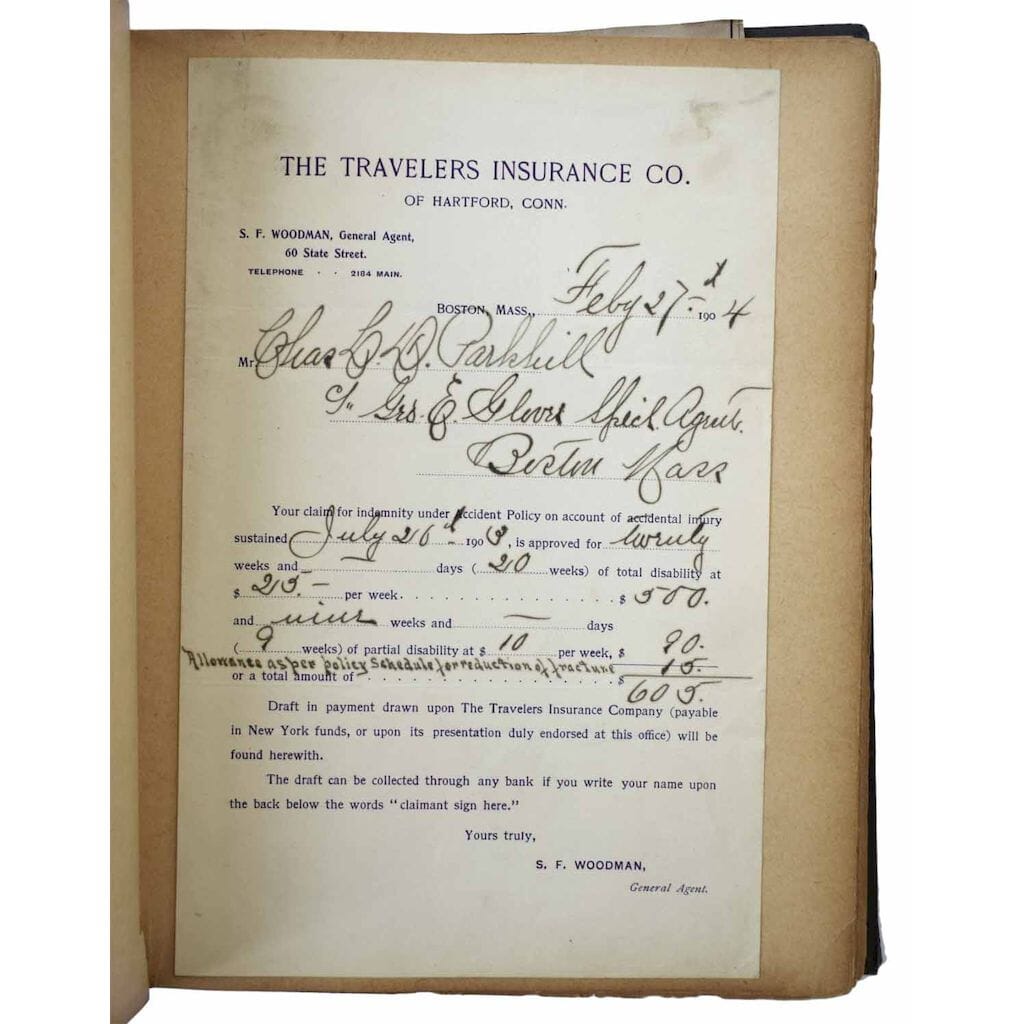 THE TRAVELERS INSURANCE CO.
OF HARTFORD, CONN.
S. F. WOODMAN, General Agent,
60 State Street.
TELEPHONE · · 2184 MAIN.
BOSTON, MASS., Feby 27th 1904
Mr. Chas L. D. Parkhill
c/o Geo. E. Glover Specl. Agent.
Boston Mass
Your claim for indemnity under Accident Policy on account of accidental injury
sustained July 26th 1903, is approved for twenty
weeks and — days ( 20 weeks) of total disability at
$ 25.– per week . . . . . . . . . . . . . . . $ 500.
and nine weeks and — days
( 9 weeks) of partial disability at $ 10 per week, $ 90.
Allowance as per policy Schedule for reduction of fracture 15.–
or a total amount of . . . . . . . . . . . . . . . . . . $ 605.
Draft in payment drawn upon The Travelers Insurance Company (payable
in New York funds, or upon its presentation duly endorsed at this office) will be
found herewith.
The draft can be collected through any bank if you write your name upon
the back below the words "claimant sign here."
Yours truly,
S. F. WOODMAN,
General Agent.